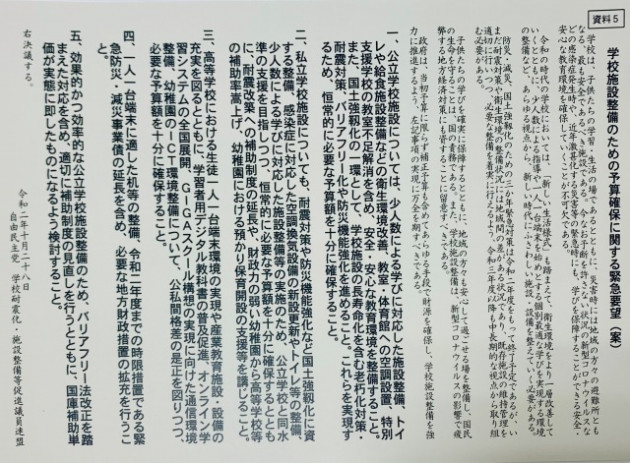 資料5
学校施設整備のための予算確保に関する緊急要望(案)
学校は、子供たちの学習・生活の場であるとともに、災害時には地域の方々の避難所とも
なる、最も安全であるべき施設である。今なお予断を許さない状況の新型コロナウイルスな
どの感染症発生時や、近年激甚化する災害等の緊急時に、学びを保障することができる安全・
安心な教育環境を確保していくことが不可欠である。
令和の時代の学校においては、「新しい生活様式」も踏まえて、衛生環境をより一層改善して
いくとともに、少人数による指導や一人一台端末を始めとする個別最適な学びを実現する環境
の整備など、あらゆる視点から、新しい時代にふさわしい施設、設備を整えていく必要がある。
防災・減災、国土強靱化のための三か年緊急対策は令和二年度をもって終了予定であるが、い
まだ耐震対策や衛生環境の整備状況には地域間の差がある状況であり、既存施設の維持管理を
適切に行いつつ、必要な整備を着実に行えるよう、令和三年度以降も中長期的な視点から取り組
む必要がある。
子供たちの学びを確実に保障するとともに、地域の方々も安心して過ごせる場を整備し、国民
の生命を守ることは、国の責務である。また、学校施設整備は、新型コロナウイルスの影響で疲
弊する地方経済対策にも資することに留意すべきである。
政府は、当初予算に限らず補正予算も含めてあらゆる手段で財源を確保し、学校施設整備を強
力に推進するよう、左記事項の実現に万全を期すべきである。
一、公立学校施設については、少人数による学びに対応した施設整備、トイ
レや給食施設整備などの衛生環境改善、教室・体育館への空調設置、特別
支援学校の教室不足解消を含め、安全・安心な教育環境を整備すること。
また、国土強靱化の一環として、学校施設の長寿命化を含む老朽化対策・
耐震対策、バリアフリー化や防災機能強化を進めること。これらを実現す
るため、恒常的に必要な予算額を十分に確保すること。
二、私立学校施設についても、耐震対策や防災機能強化など国土強靱化に資
する整備、感染症に対応した空調換気設備の新設更新やトイレ等の整備、
少人数による学びに対応した施設整備等の実施のため、公立学校と同水
準の支援を目指しつつ、恒常的に必要な予算額を十分に確保するととも
に、耐震改築への補助制度の延長や、財政力の弱い幼稚園から高等学校等
の補助率嵩上げ、幼稚園における預かり保育開設の支援等を講じること。
三、高等学校における生徒一人一台端末環境の実現や産業教育施設、設備の
充実を図るとともに、学習者用デジタル教科書の普及促進、オンライン学
習システムの全国展開、GIGAスクール構想の実現に向けた通信環境
整備、幼稚園のICT環境整備について、公私間格差の是正を図りつつ、
必要な予算額を十分に確保すること。
四、一人一台端末に適した机等の整備、令和二年度までの時限措置である緊
急防災・減災事業債の延長を含め、必要な地方財政措置の拡充を行うこ
と。
五、効果的かつ効率的な公立学校施設整備のため、バリアフリー法改正を踏
まえた対応を含め、適切に補助制度の見直しを行うとともに、国庫補助単
価が実態に即したものになるよう検討すること。
右決議する。
令和二年十月二十八日
自由民主党 学校耐震化・施設整備等促進議員連盟